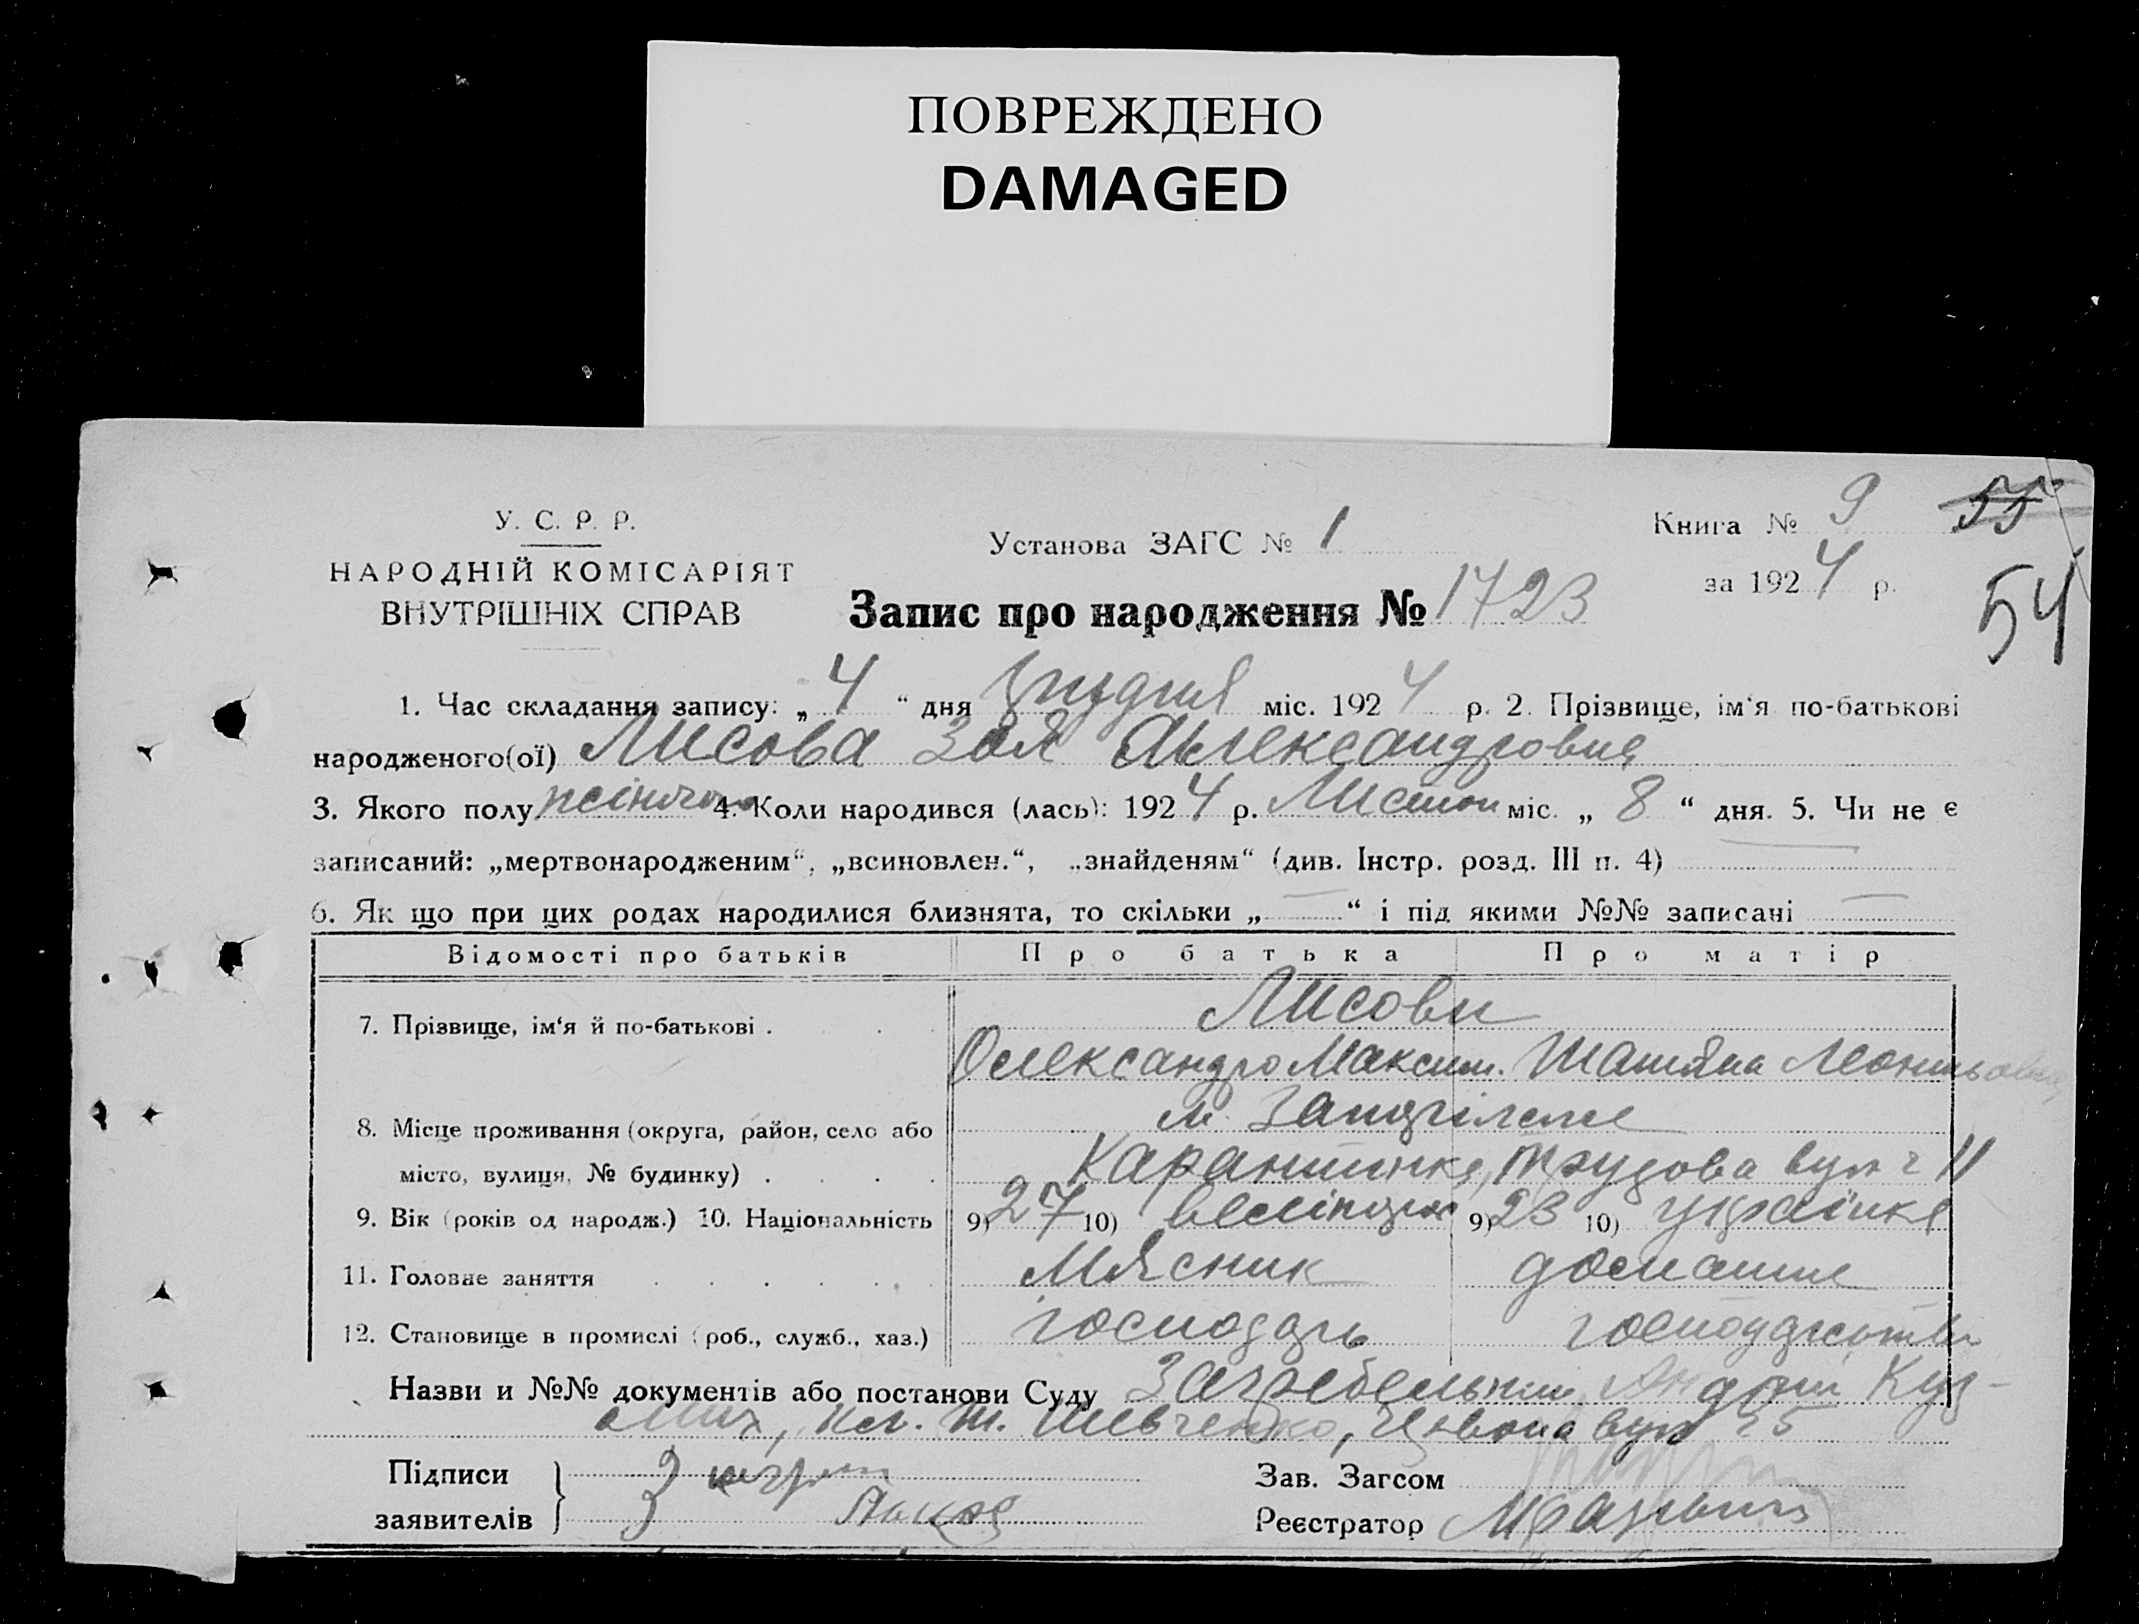 ПОВРЕЖДЕНО
DAMAGED
У. С. Р. Р.
НАРОДНІЙ КОМІСАРІЯТ
ВНУТРІШНІХ СПРАВ
Установа ЗАГС № 1
Книга № 9 55
за 1924 р. 54
Запис про народження № 1723
1. Час складання запису: „ 4 “ дня грудня міс. 1924 р. 2. Прізвище, ім‘я по-батькові
народженого(ої) Лисова Зоя Александровна
3. Якого полу жіночого 4. Коли народився (лась): 1924 р. Листоп міс. „ 8 “ дня. 5. Чи не є
записаний: „мертвонародженим“, „всиновлен.“, „знайденям“ (див. Інстр. розд. III п. 4)
6. Як що при цих родах народилися близнята, то скільки „ — “ і під якими №№ записані —
Відомості про батьків Про батька Про матір
7. Прізвище, ім‘я й по-батькові . Лисови
Олександр Максим. Татяна
8. Місце проживання (округа, район, село або м. Запоріжже
місто, вулиця, № будинку) . Карантинка, Трудова вул ч 11
9. Вік (років од народж.) 10. Національність 9) 27 10) 9) 23 10) українка
11. Головне заняття Мясник домашнє
12. Становище в промислі (роб., служб., хаз.) господарь господарство
Назви и №№ документів або постанови Суду Загребельний Андрій Куз-
Шевченко, вул 25
Підписи
заявителів
Зав. Загсом
Реєстратор